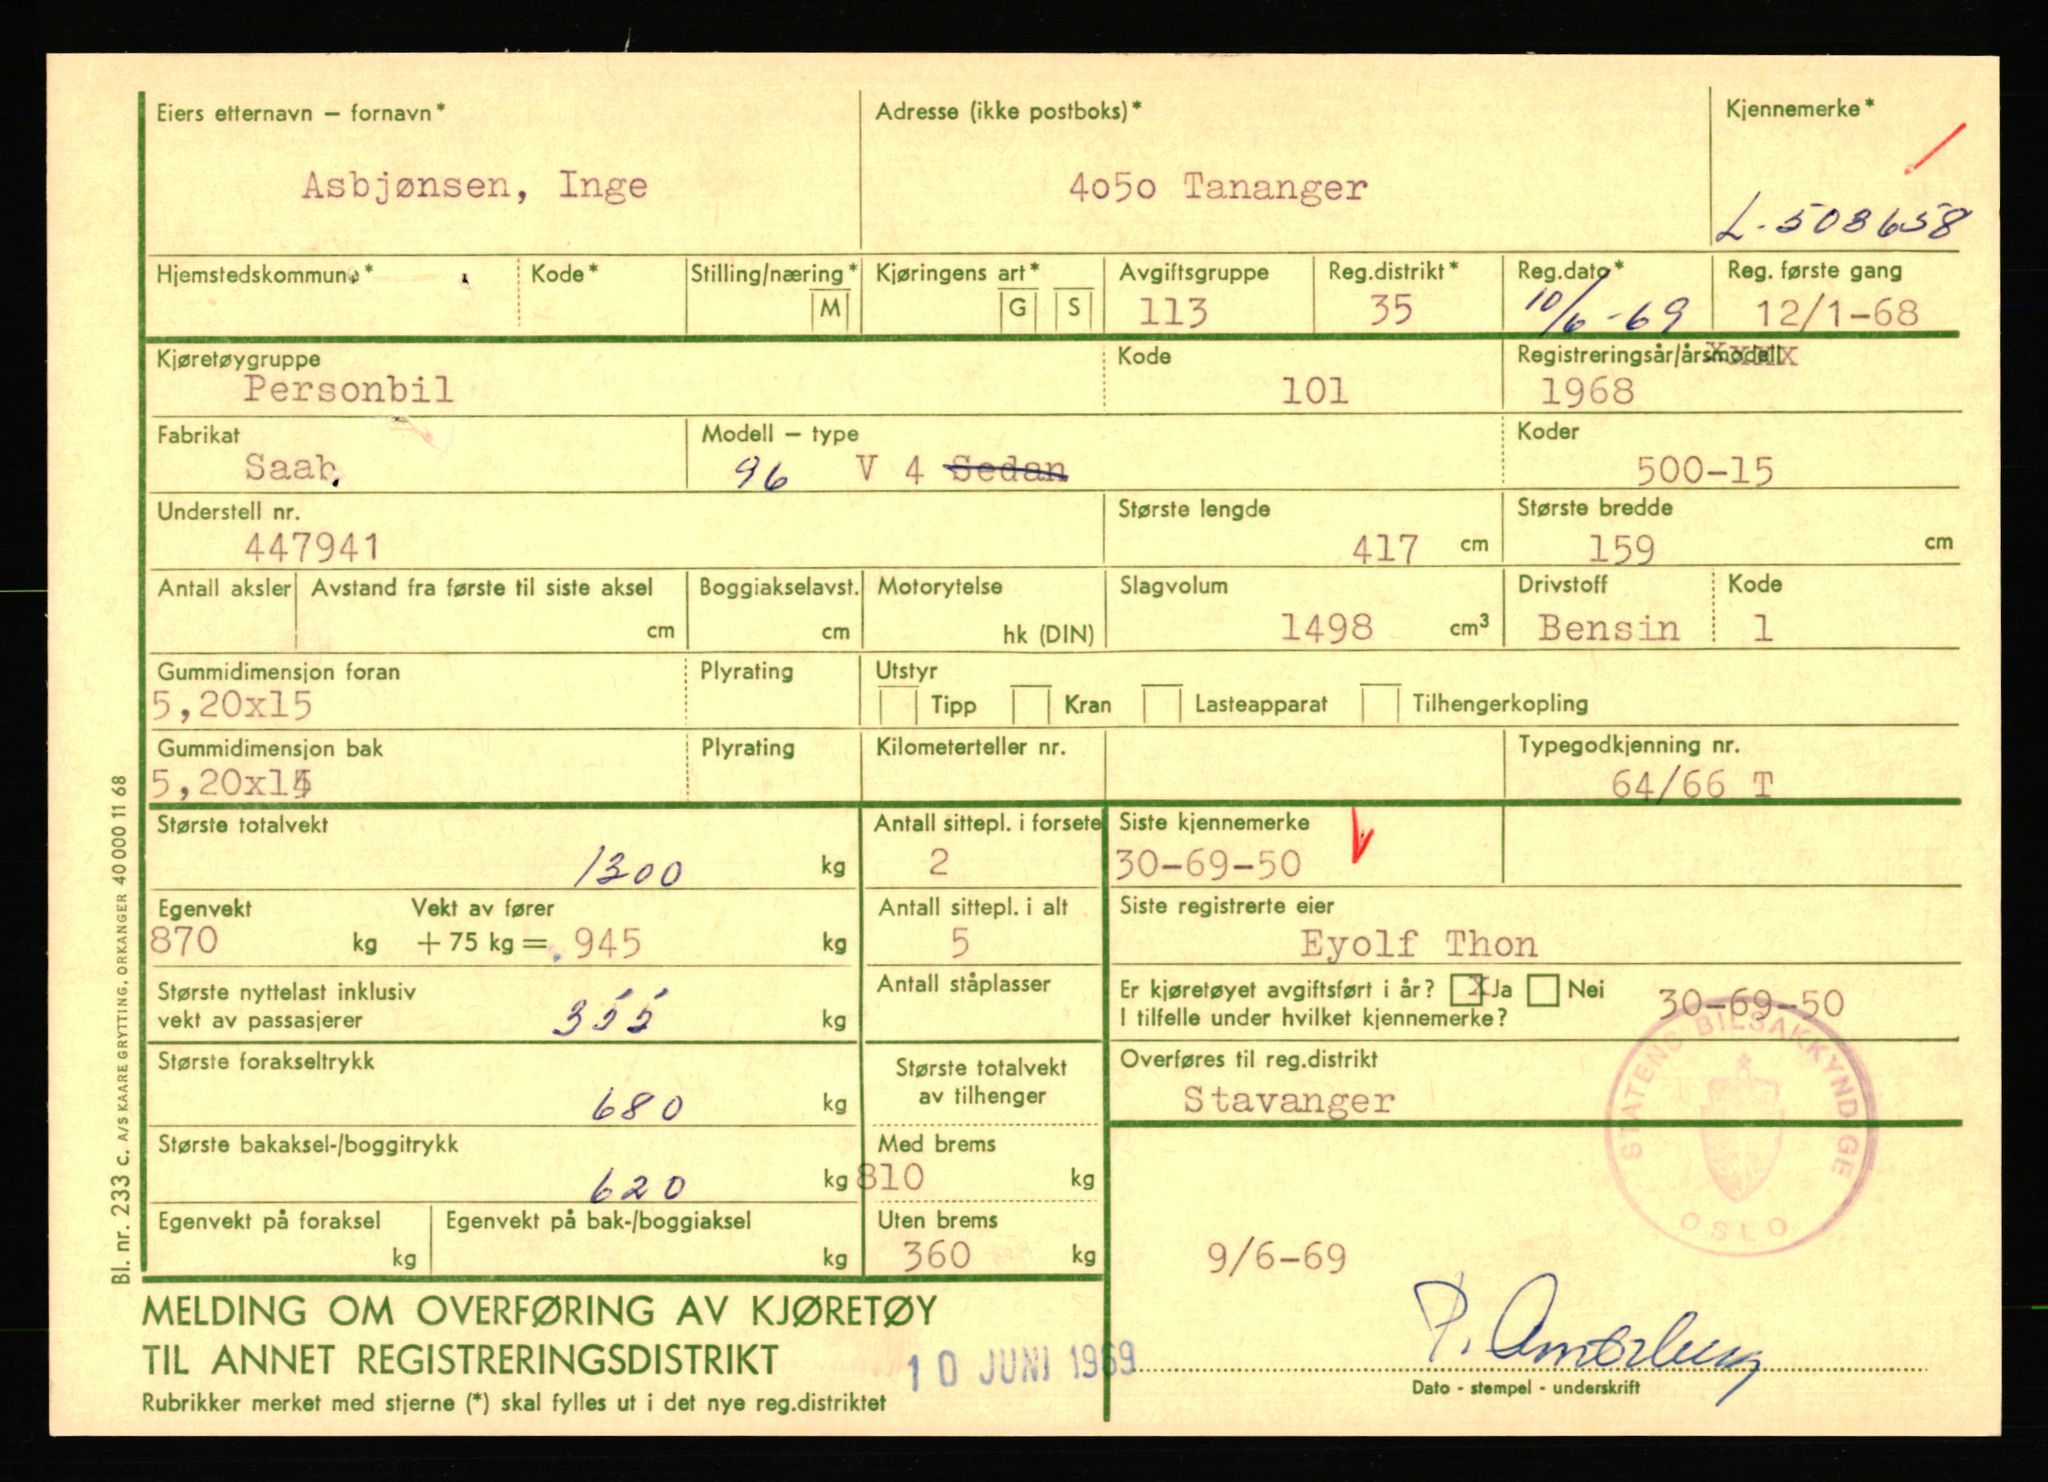 Eiers etternavn – fornavn*
Adresse (ikke postboks)*
Kjennemerke*
Asbjønsen, Inge
4050 Tananger
L-508658
Hjemstedskommune*
Kode*
Stilling/næring*
M
Kjøringens art*
G
S
Avgiftsgruppe
113
Reg.distrikt*
35
Reg.dato*
10/6-69
Reg. første gang
12/1-68
Kjøretøygruppe
Personbil
Kode
101
Registreringsår/årsmodell
1968
Fabrikat
Saab
Modell – type
96 V 4 Sedan
Koder
500-15
Understell nr.
447941
Største lengde
417 cm
Største bredde
159 cm
Antall aksler
Avstand fra første til siste aksel
cm
Boggiakselavst.
cm
Motorytelse
hk (DIN)
Slagvolum
1498 cm³
Drivstoff
Bensin
Kode
1
Gummidimensjon foran
5,20x15
Plyrating
Utstyr
Tipp
Kran
Lasteapparat
Tilhengerkopling
Gummidimensjon bak
5,20x15
Plyrating
Kilometerteller nr.
Typegodkjenning nr.
64/66 T
Største totalvekt
1300 kg
Antall sittepl. i forsete
2
Siste kjennemerke
30-69-50
Egenvekt
870 kg
Vekt av fører
+ 75 kg = 945 kg
Antall sittepl. i alt
5
Siste registrerte eier
Eyolf Thon
Største nyttelast inklusiv
vekt av passasjerer
355 kg
Antall ståplasser
Er kjøretøyet avgiftsført i år? X Ja Nei
I tilfelle under hvilket kjennemerke?
30-69-50
Største forakseltrykk
680 kg
Største totalvekt
av tilhenger
Overføres til reg.distrikt
Stavanger
Største bakaksel-/boggitrykk
620 kg
Med brems
810 kg
Egenvekt på foraksel
kg
Egenvekt på bak-/boggiaksel
kg
Uten brems
360 kg
STATENS BILSAKKYNDIGE
OSLO
9/6-69
MELDING OM OVERFØRING AV KJØRETØY
TIL ANNET REGISTRERINGSDISTRIKT
10 JUNI 1969
Rubrikker merket med stjerne (*) skal fylles ut i det nye reg.distriktet
Dato - stempel - underskrift
Bl. nr. 233 c. A/S KAARE GRYTTING, ORKANGER 40 000 11 68